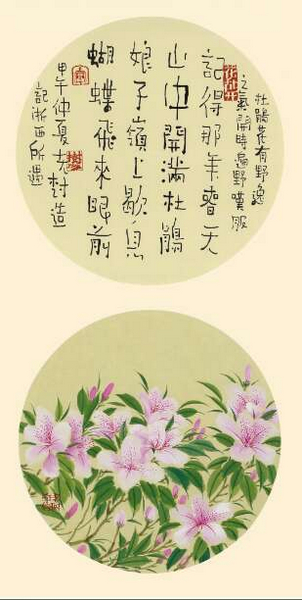 杜鵑花有野逸
之氣開時遍野嘆服
記得那年春天
山中開滿杜鵑
娘子嶺上歇息
蝴蝶飛來眼前
甲午仲夏造
記浙西所遇